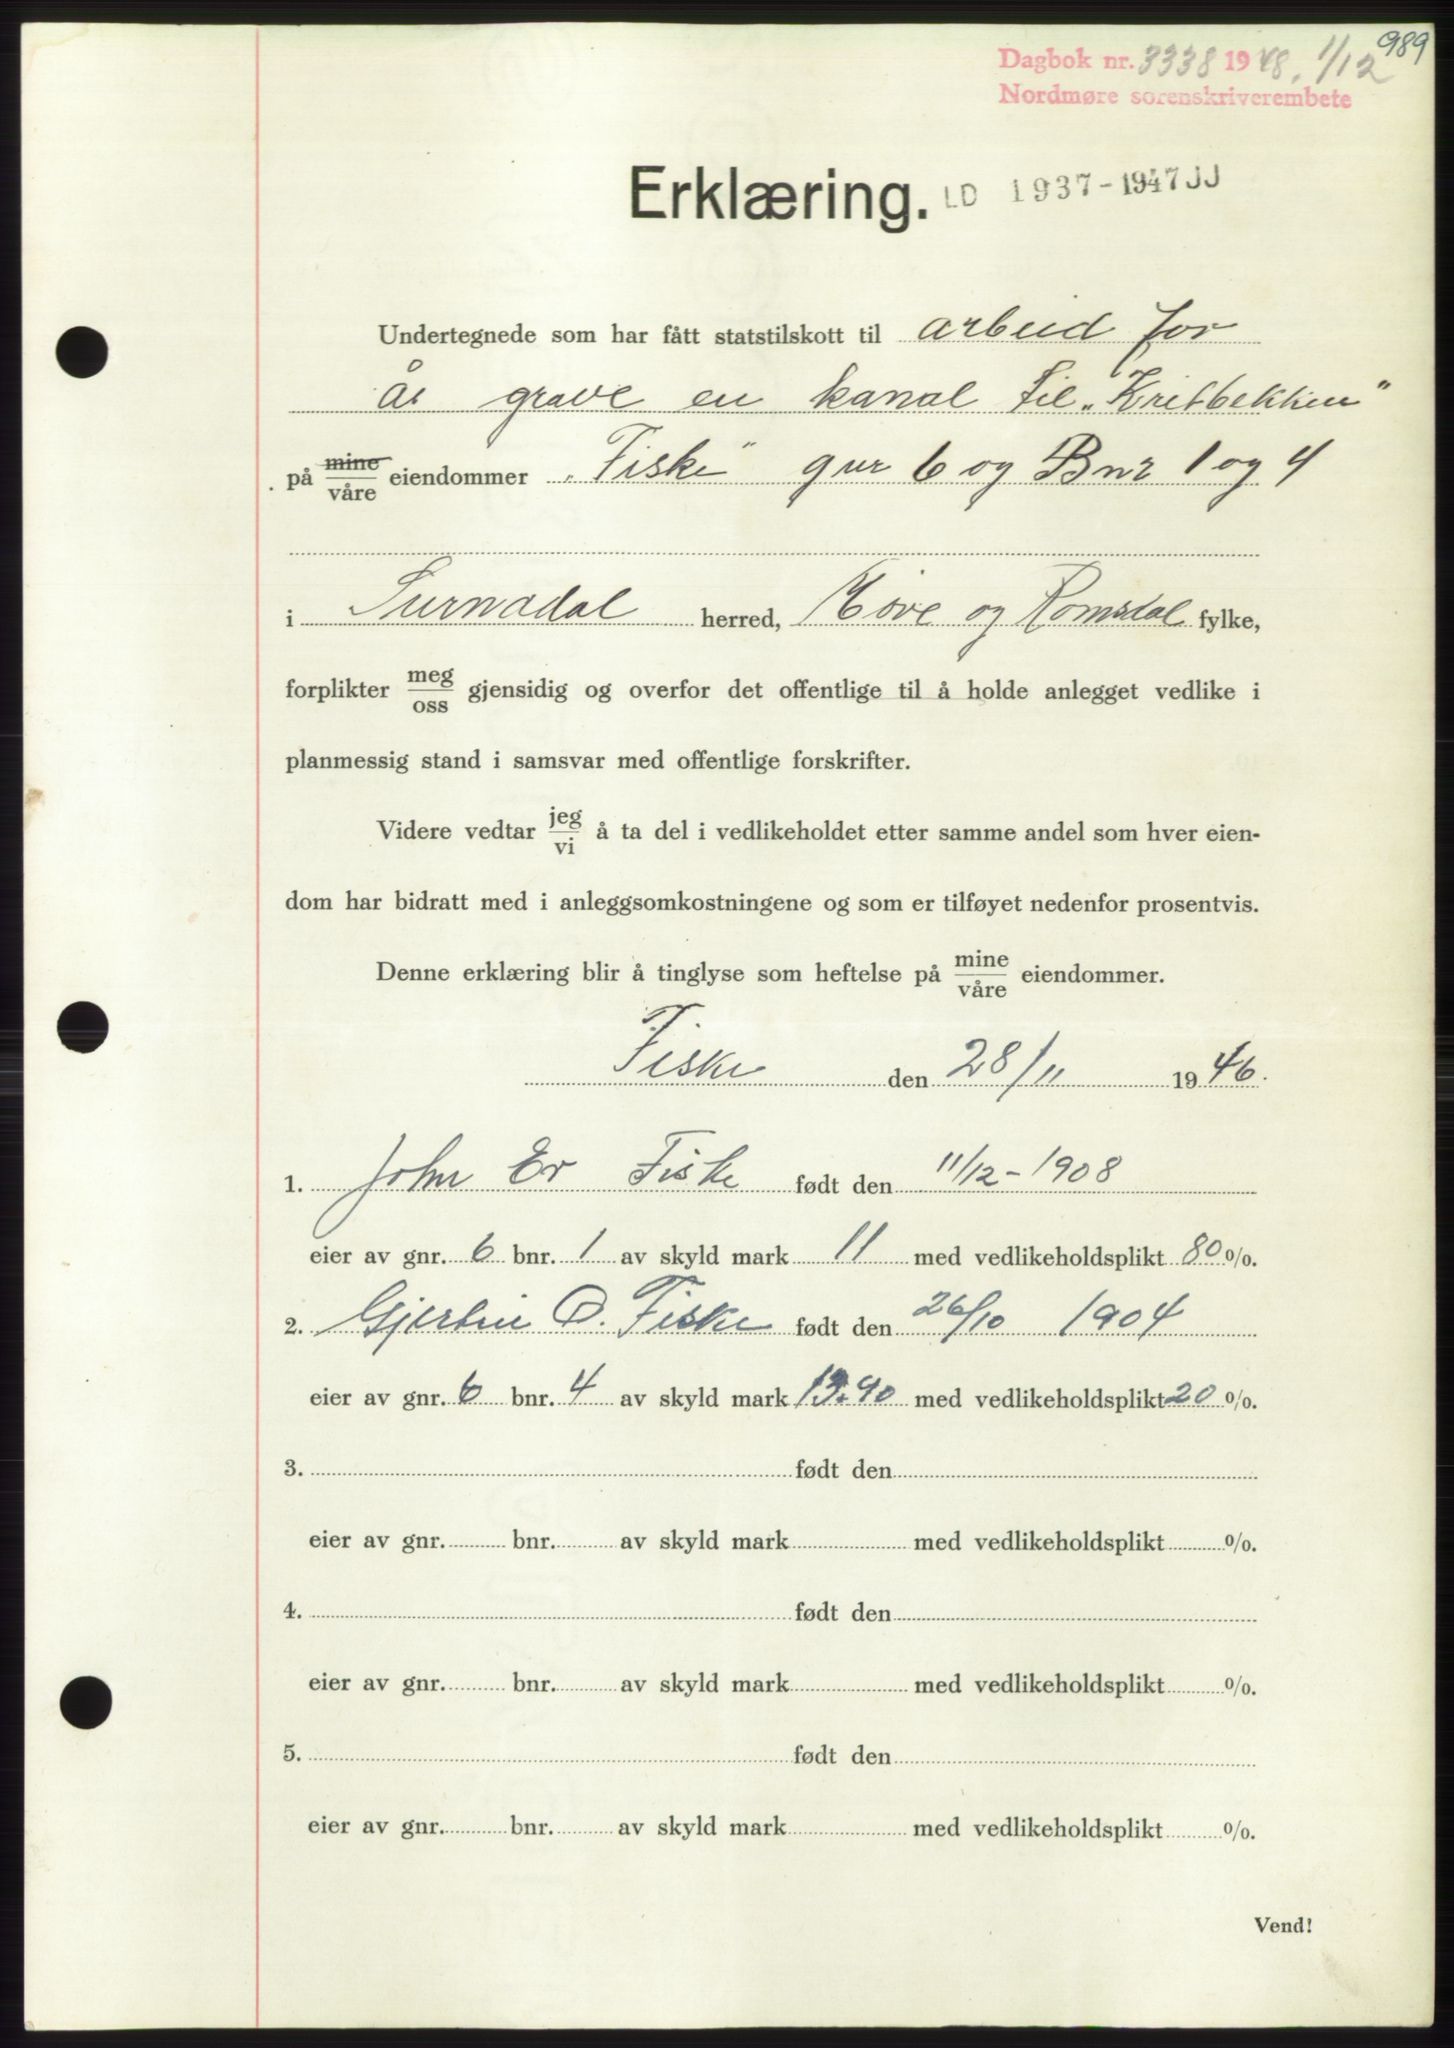 989
Dagbok nr. 3338 1948. 1/12
Nordmøre sorenskriverembete
Erklæring. LD 1937-1947 JJ
Undertegnede som har fått statstilskott til arbeid for
År grave en kanal til „Kritbekken"
på mine/våre eiendommer „Fiske" gnr 6 og Bnr 1 og 4
i Surnadal herred, Møre og Romsdal fylke,
forplikter meg/oss gjensidig og overfor det offentlige til å holde anlegget vedlike i
planmessig stand i samsvar med offentlige forskrifter.
Videre vedtar jeg/vi å ta del i vedlikeholdet etter samme andel som hver eien-
dom har bidratt med i anleggsomkostningene og som er tilføyet nedenfor prosentvis.
Denne erklæring blir å tinglyse som heftelse på mine/våre eiendommer.
Fiske den 28/11 1946.
1. John Er Fiske født den 11/12-1908
eier av gnr. 6 bnr. 1 av skyld mark 11 med vedlikeholdsplikt 80 %.
2. O. Fiske født den 26/10 1904
eier av gnr. 6 bnr. 4 av skyld mark 13.40 med vedlikeholdsplikt 20 %.
3. født den
eier av gnr. bnr. av skyld mark med vedlikeholdsplikt %.
4. født den
eier av gnr. bnr. av skyld mark med vedlikeholdsplikt %.
5. født den
eier av gnr. bnr. av skyld mark med vedlikeholdsplikt %.
Vend!